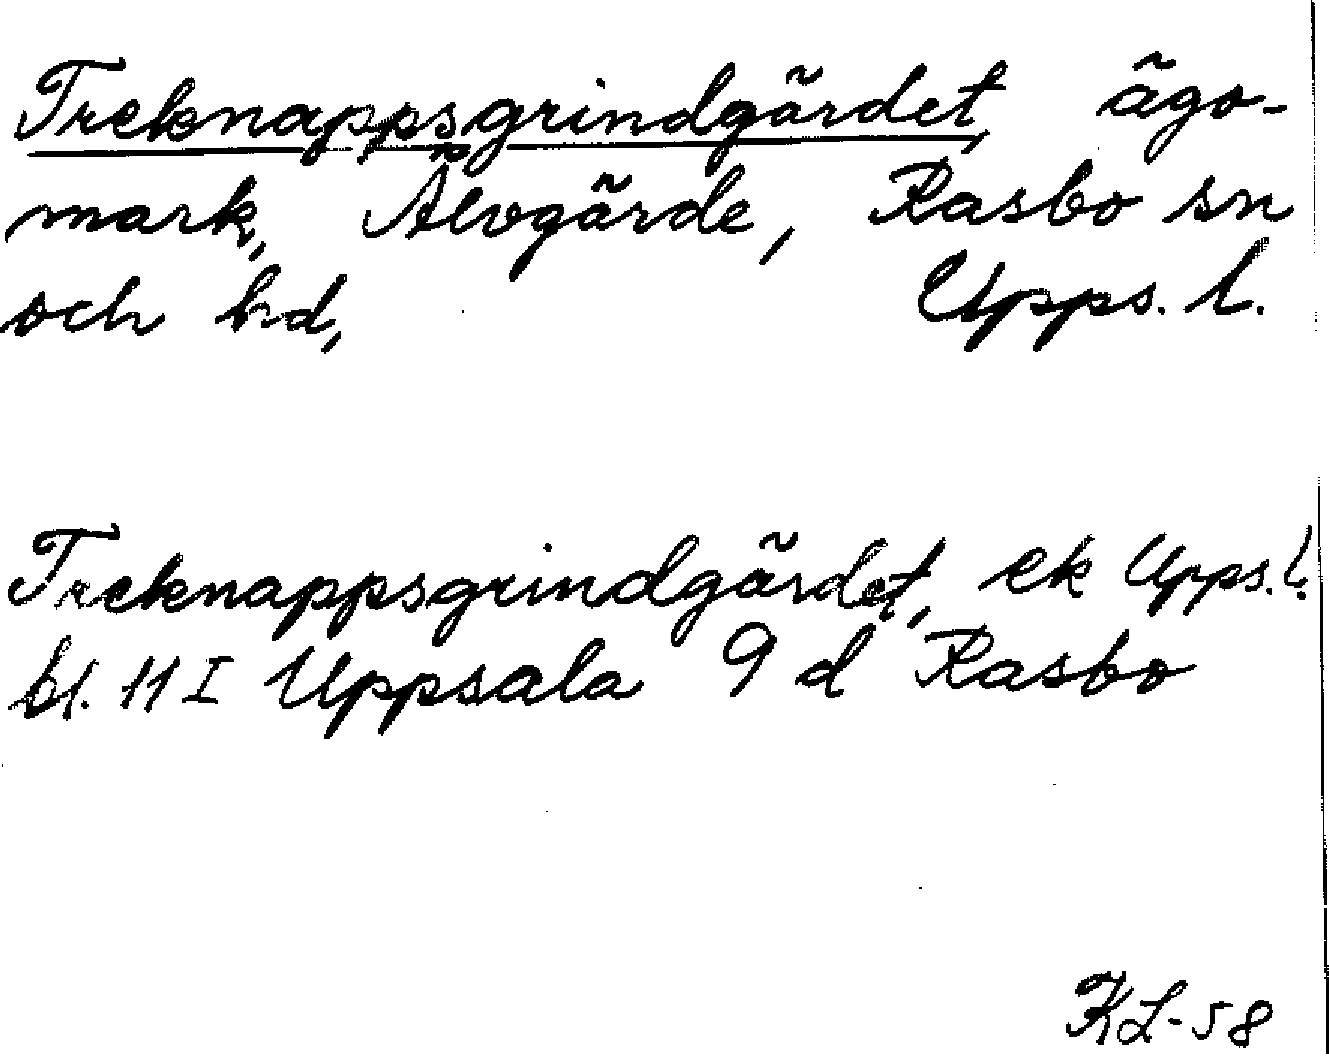 Treknappsgrindgärdet, ägo-
mark, Älvgärde, Rasbo sn
och hd, Upps. l.
Treknappsgrindgärdet, ek Upps. l.
bl. 11 I Uppsala 9 d Rasbo
KL-58